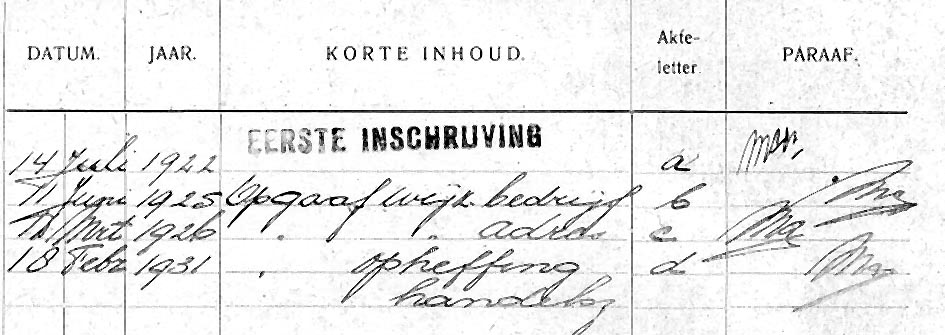 DATUM. JAAR. KORTE INHOUD. Akte-letter. PARAAF.
EERSTE INSCHRIJVING
14 Juli 1922 a
11 Juni 1925 Opgaaf wijz. bedrijf b
Mrt 1926 " " adres c
18 Febr 1931 " opheffing d
handelsz